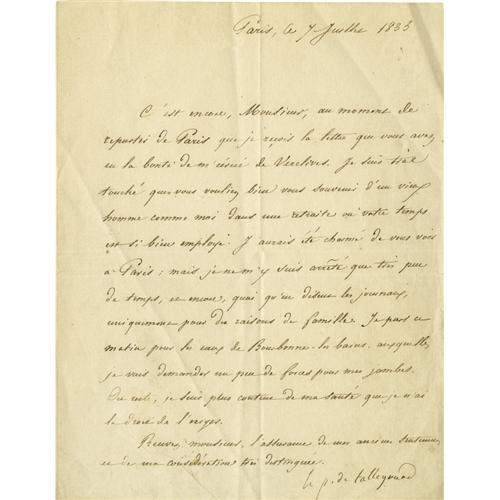 Paris, ce 7 Juillet 1835
C'est encore, Monsieur, au moment de
repartir de Paris que je reçois la lettre que vous avez
eu la bonté de m'écrire de Verelives. Je suis très
touché que vous vouliez bien vous souvenir d'un vieux
homme comme moi dans une retraite où votre temps
est si bien employé. J'aurais été charmé de vous voir
à Paris; mais je ne m'y suis arrêté que très peu
de temps, et encore, quoi qu'en disent les journaux,
uniquement pour des raisons de famille. Je pars ce
matin pour les eaux de Bourbonne-les-bains, auxquelles
je vais demander un peu de forces pour mes jambes.
Du reste, je suis plus content de ma santé que je n'ai
le droit de l'exiger.
Recevez, monsieur, l'assurance de mes anciens sentimens
et de ma considération très distinguée.
le p. de talleyrand